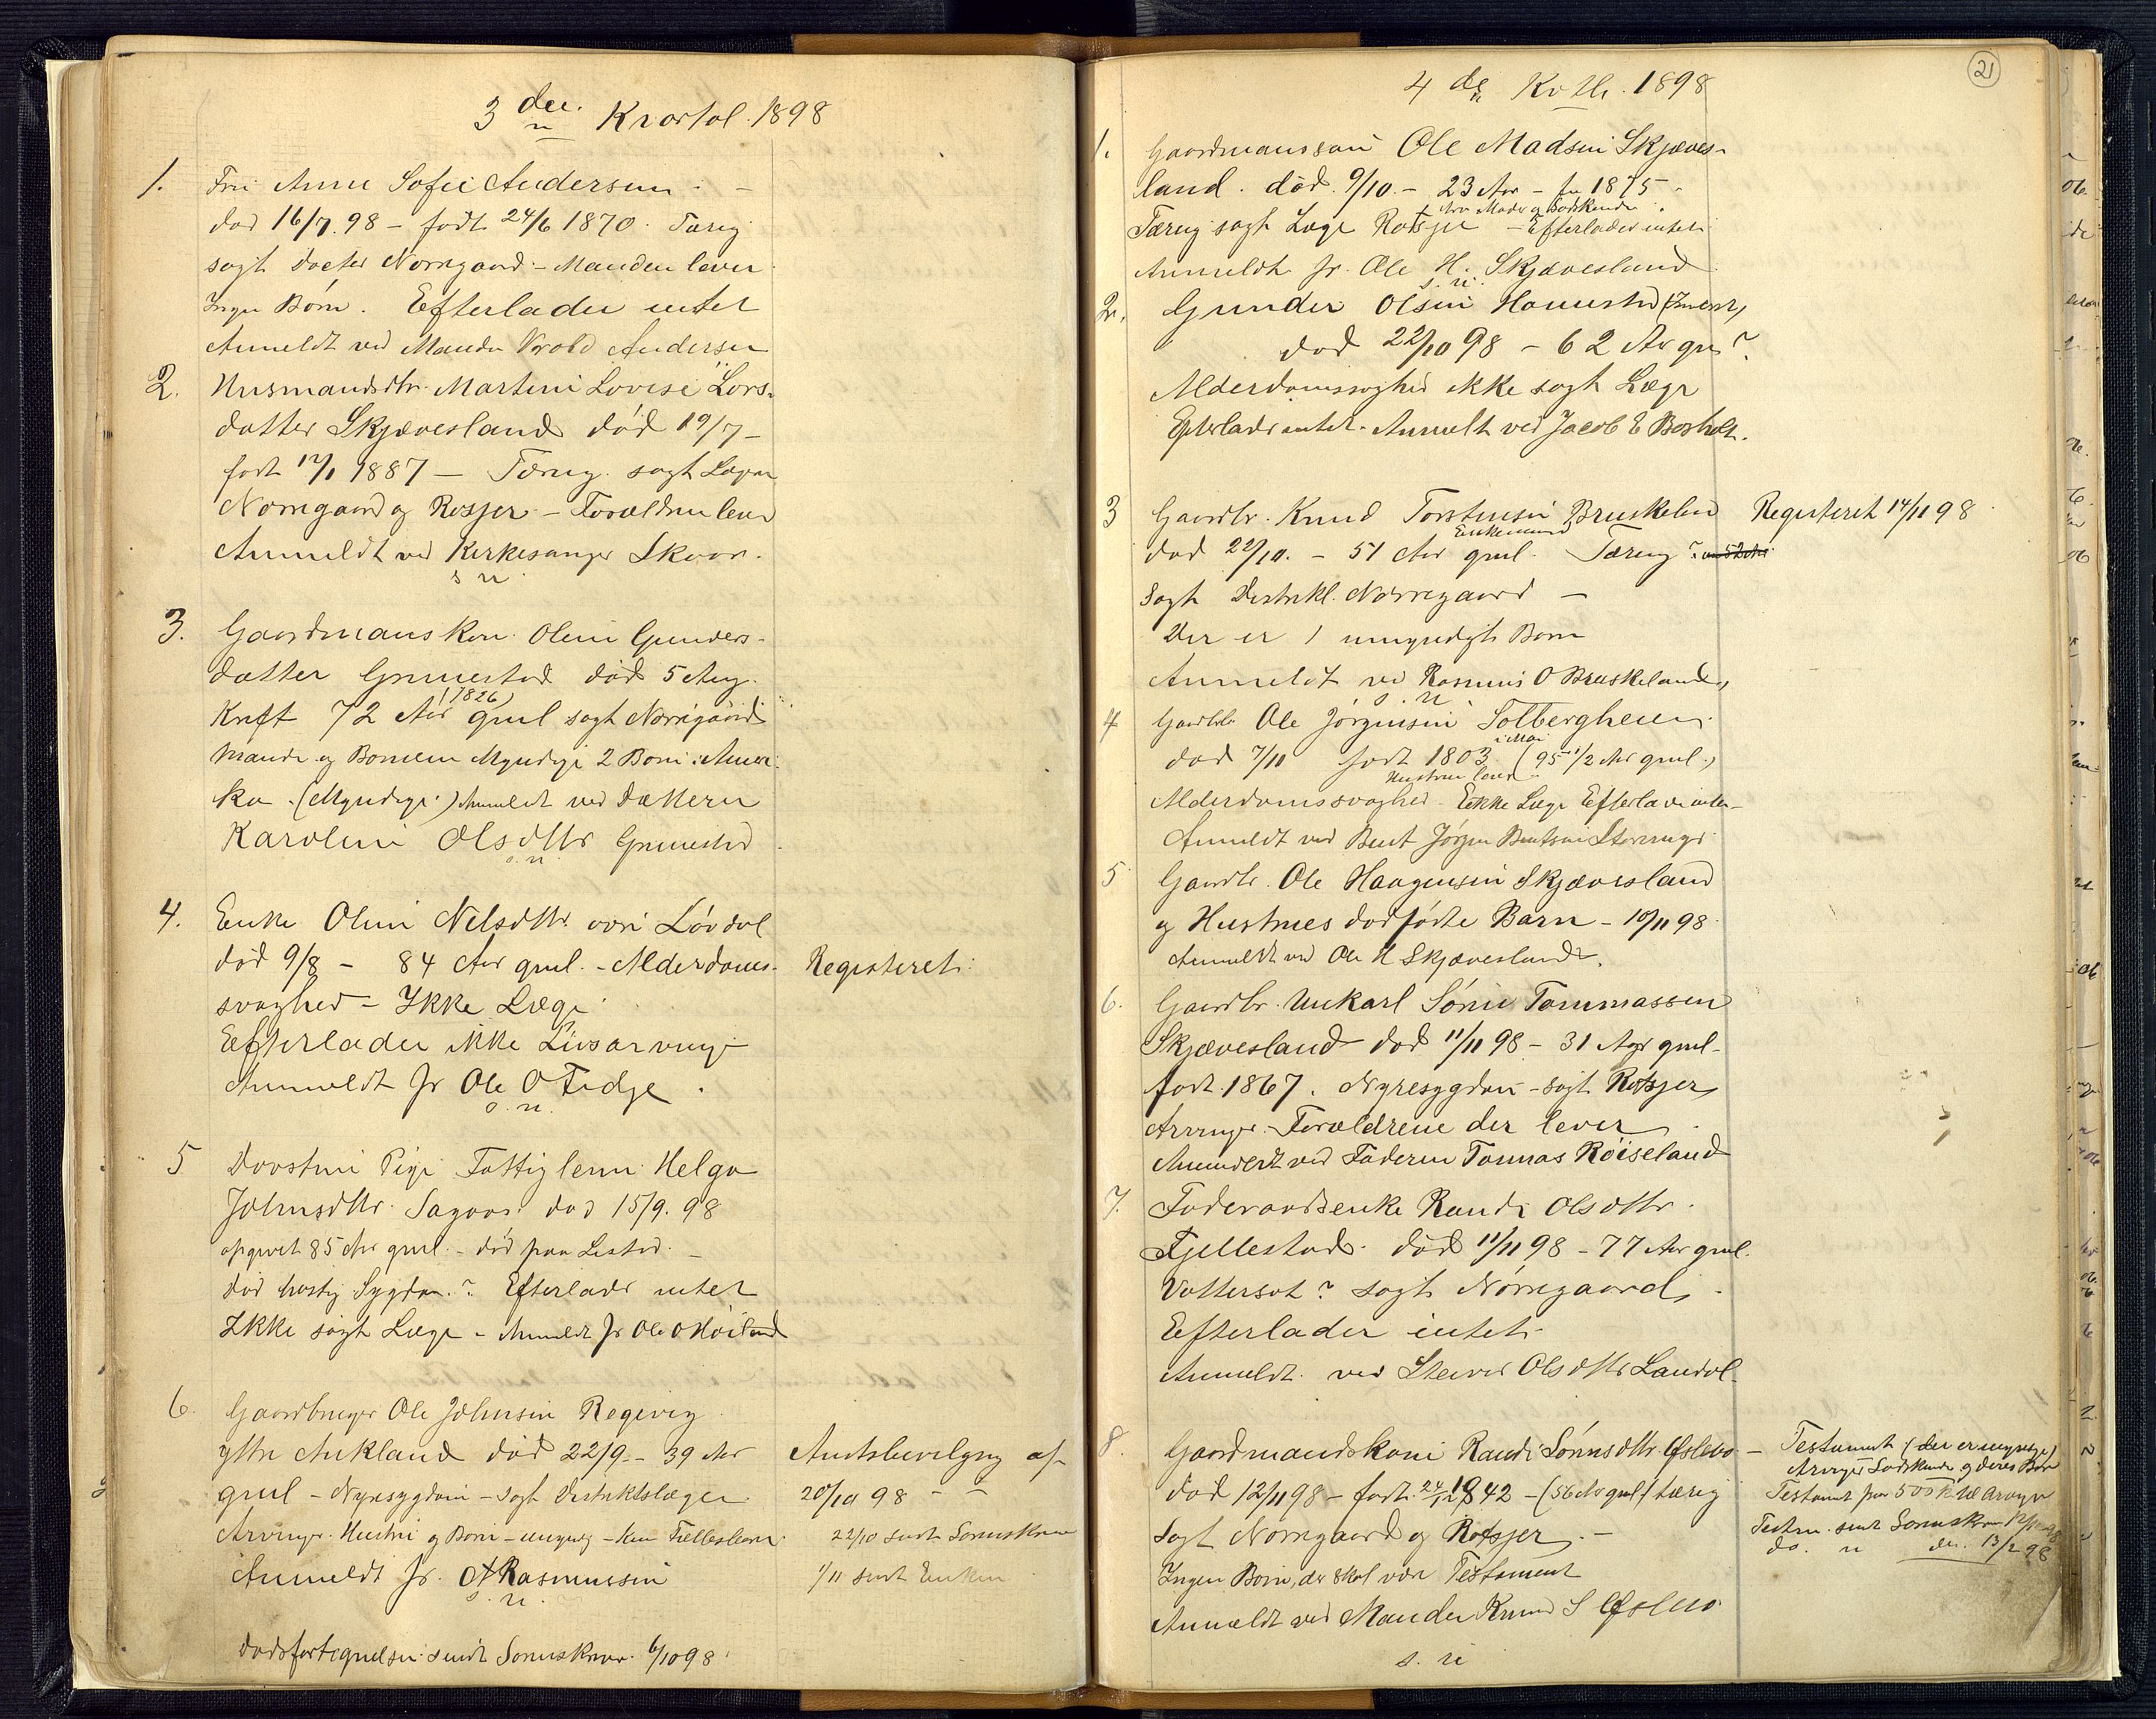 3 die Kvartal 1898
1. Fru Anne Sofie Andersen
død 16/7.98 – født 24/6 1870. Tæring
søgt Doctor Nørregaard – Manden lever
Ingen Børn. Efterlader intet
Anmeldt ved Manden Andersen
2. Husmandsdtr. Martine Lovise Lars-
datter Skjævesland død 19/7 –
født 12/1 1887 – Tæring. søgt Lægen
Nørregaard og Rosjer – Forældrene lever
Anmeldt ved Kirkesanger Skaar.
s n
3. Gaardmanskone Oline Gunders-
datter Grimestad død 5 Aug.
(1826)
Kræft 72 Aar gml søgt Nørregaard
Mande og Børnene Myndige 2 Børn i Ameri-
ka. (Myndige) Anmeldt ved Datteren
Karoline Olsdttr Grimestad
s. n.
4. Enke Oline Nilsdttr. øvre Løvdal
død 9/8 – 84 Aar gml. – Alderdoms-
svaghed – Ikke Læge
Efterlader ikke Livsarvinge
Anmeldt fr Ole O Fidje.
s. n.
Registeret.
5 Pige Fattiglem Helga
Johnsdttr. død 15/9.98
opgivet 85 Aar gml. – død paa
død hastig Sygdom.? Efterlader intet
Ikke søgt Læge – Anmeldt fr Ole O Høiland
6. Gaardbruger Ole Johnsen Regevig
yttre Aukland død 22/9 – 39 Aar
gml – Nyresygdom – søgt Distriktslægen
Arvinger. Hustru og Børn – umyndig – Fællesbørn.
Anmeldt fr. A Rasmussen
s. n.
Amtsbevilgning af
20/10 98
22/10 sendt Sorenskriver
1/11 sendt Enken
Dødsfortegnelsen sendt Sorenskriver. 6/10 98
21
4 de Kvtl. 1898
1. Gaardmanssøn Ole Madsen Skjæves-
land. død. 9/10. – 23 Aar – fø 1875
Moder og Sødskende
Tæring søgt Læge Rosjer – Efterlader intet.
Anmeldt fr. Ole H. Skjævesland
s. n.
2. Gunder Olsen Homestad
død 22/10 98 – 62 Aar gml?
Alderdomssvaghed ikke søgt Læge
Efterlader intet. Anmeldt ved Jacob E Bosholt.
3 Gaardbr. Knud Torstensen Bruskeland
Enkemand
død 22/10. – 51 Aar gml. Tæring?
søgt Distriktl. Nørregaard –
Der er 1 umyndigt Barn
Anmeldt ved Rasmus O Bruskeland,
s. n
Registeret 14/11 98
4 Gaardbr Ole Jørgensen Solbergheien
i Mai
død 7/11 født 1803 (95 1/2 Aar gml.)
Hustruen lever
Alderdomssvaghed – Ikke Læge Efterlader intet –
Anmeldt ved Bent Jørgen Bentsen
5 Gaardbr. Ole Haagensen Skjævesland
og Hustrues dødfødte Barn – 10/11 98
Anmeldt ved Ole H Skjævesland.
6. Gaardbr. Unkarl Søren Tommassen
Skjævesland død 11/11 98 – 31 Aar gml –
født 1867. Nyresygdom – søgt Rosjer
Arvinger – Forældrene der lever
Anmeldt ved Faderen Tommas Røiseland
7. Føderaadsenke Randi Olsdttr.
Fjellestad. død 11/11 98 – 77 Aar gml.
Vattersot? søgt Nørregaard,
Efterlader intet
Anmeldt ved Olsdttr Landal
8. Gaardmandskone Randi Sørensdttr Øslebø –
død 12/11 98 – født 24/12 1842 – (56 Aar gml) tæring
søgt Nørregaard og Rosjer. –
Ingen Børn, der skal være Testament
Anmeldt ved Manden Knud S Øslebø
s. n
Testament (der er umyndige)
Arvinger Sødskende og deres Børn
Testament paa 500 Kr til Arving
Testm. sendt Sorenskr
do. n do. 13/2 98